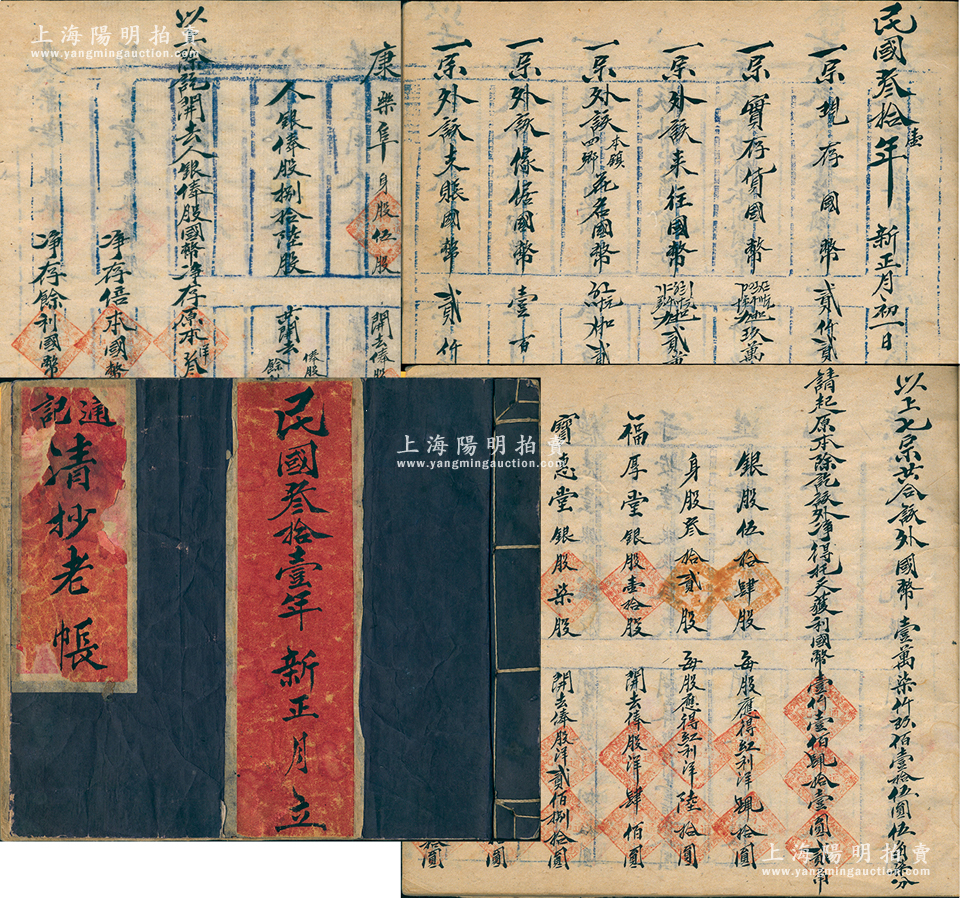 民國叁拾壹年 新正月初一日
一宗現存國幣 貳仟貳
一宗實存貨國幣 玖萬
一宗外該來往國幣 貳萬
一宗外該本鎮四鄉花名國幣
一宗外該傢俱國幣 壹百
一宗外該未賬國幣 貳仟
康樂阜 身股伍股 開去俸股
人銀俸股捌拾陸股
以上除訖開去人銀俸股國幣淨存原本洋叁
淨存倍本國幣
淨存餘利國幣
民國叁拾壹年 新正月立
通記
清抄老帳
以上七宗共合該外國幣 壹萬柒仟玖佰壹拾伍圓伍角
請起原本除訖該外淨得把又獲利國幣壹仟壹佰肆拾壹圓貳角
銀股伍拾肆股 每股應得紅利洋肆拾圓
身股叁拾貳股 每股應得紅利洋陸拾圓
福厚堂 銀股壹拾股 開去俸股洋肆佰圓
寶德堂 銀股柒股 開去俸股洋貳佰捌拾圓
上海陽明拍賣
www.yangmingauction.com
上海陽明拍賣
www.yangmingauction.com
上海陽明拍賣
www.yangmingauction.com
上海陽明拍賣
www.yangmingauction.com